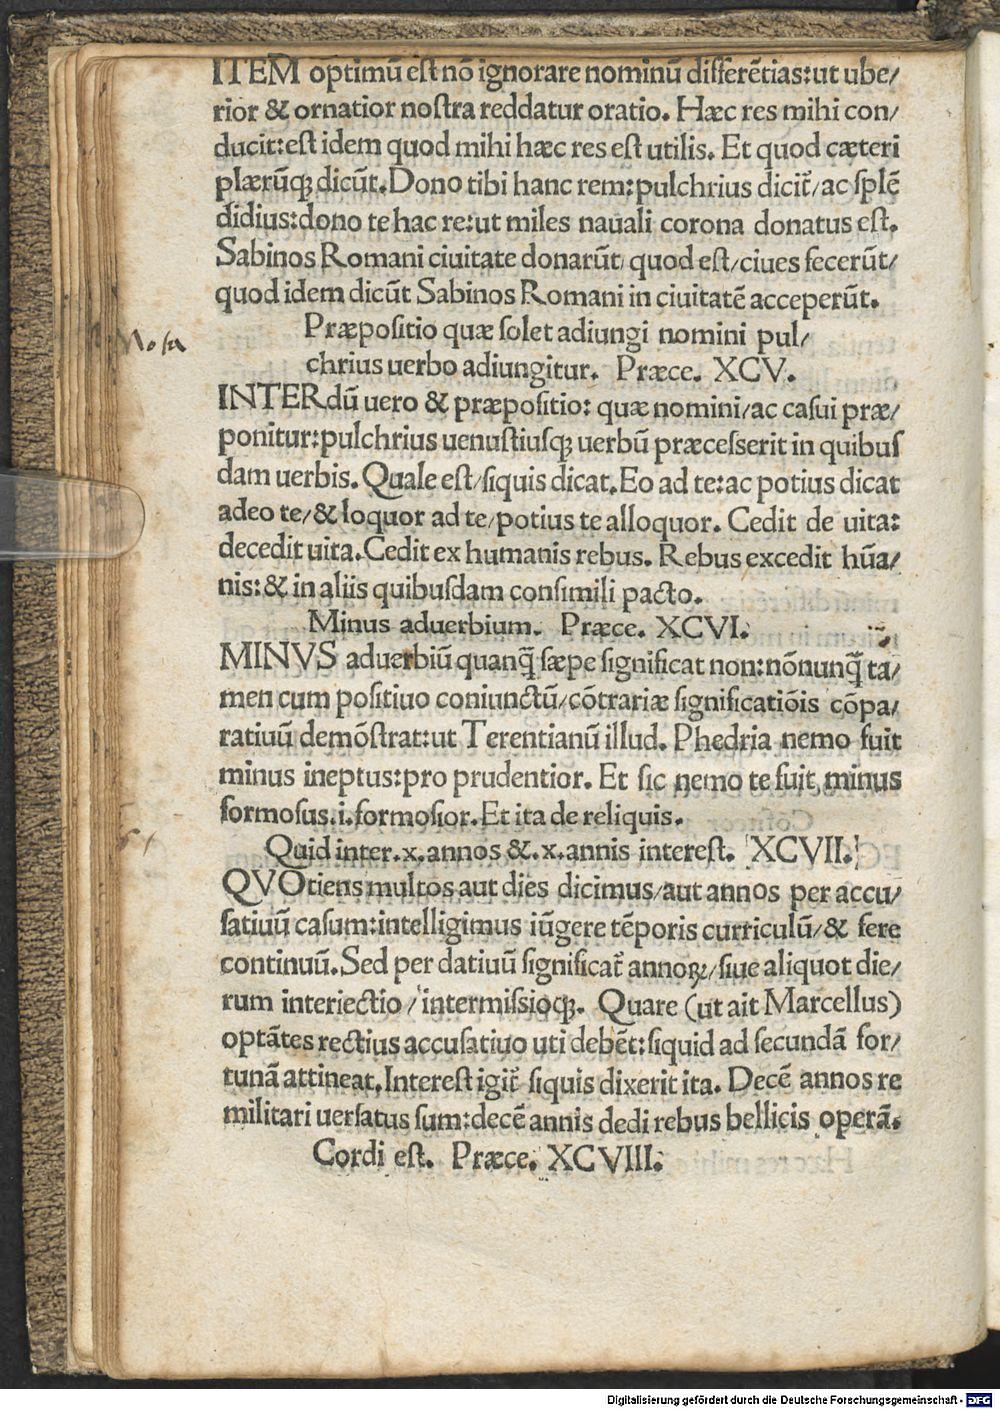 ITEM optimū est nō ignorare nominū differētias: ut ube/
rior & ornatior nostra reddatur oratio. Hæc res mihi con/
ducit: est idem quod mihi hæc res est utilis. Et quod cæteri
plærūqȝ dicūt. Dono tibi hanc rem: pulchrius dicit̄/ ac splē
didius: dono te hac re: ut miles nauali corona donatus est.
Sabinos Romani ciuitate donarūt/ quod est/ ciues fecerūt/
quod idem dicūt Sabinos Romani in ciuitatē acceperūt.
Præpositio quæ solet adiungi nomini pul/
chrius uerbo adiungitur. Præce. XCV.
Nota
INTERdū uero & præpositio: quæ nomini/ ac casui præ/
ponitur: pulchrius uenustiusqȝ uerbū præcesserit in quibus
dam uerbis. Quale est/ siquis dicat. Eo ad te: ac potius dicat
adeo te/ & loquor ad te/ potius te alloquor. Cedit de uita:
decedit uita. Cedit ex humanis rebus. Rebus excedit hūa/
nis: & in aliis quibusdam consimili pacto.
Minus aduerbium. Præce. XCVI.
MINVS aduerbiū quanq̄ sæpe significat non: nōnunq̄ ta/
men cum positiuo coniunctū/ cōtrariæ significatiōis cōpa/
ratiuū demōstrat: ut Terentianū illud. Phedria nemo fuit
minus ineptus: pro prudentior. Et sic nemo te fuit minus
formosus .i. formosior. Et ita de reliquis.
Quid inter .x. annos & .x. annis interest. XCVII.
QVOtiens multos aut dies dicimus/ aut annos per accu/
satiuū casum: intelligimus iūgere tēporis curriculū/ & fere
continuū. Sed per datiuū significat̄ annoꝝ/ siue aliquot die/
rum interiectio/ intermissioqȝ. Quare (ut ait Marcellus)
optātes rectius accusatiuo uti debēt: siquid ad secundā for/
tunā attineat. Interest igit̄ siquis dixerit ita. Decē annos re
militari uersatus sum: decē annis dedi rebus bellicis operā.
Cordi est. Præce. XCVIII.
Digitalisierung gefördert durch die Deutsche Forschungsgemeinschaft - DFG